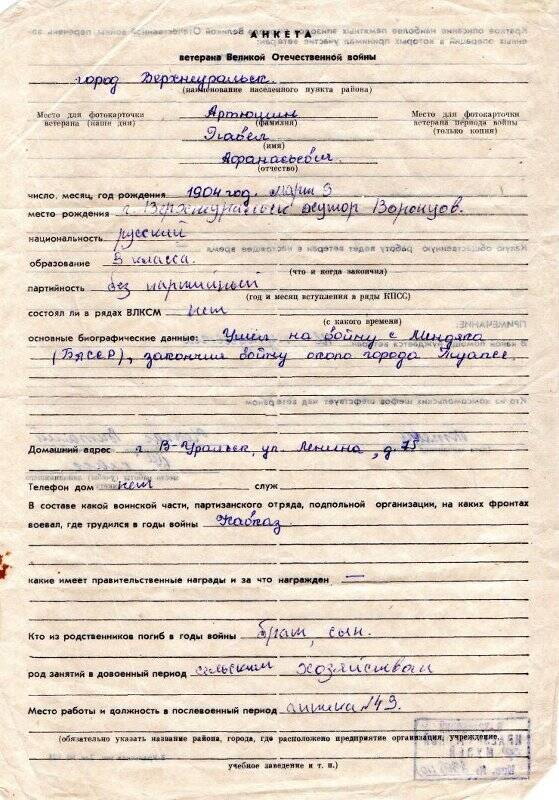 АНКЕТА
ветерана Великой Отечественной войны
город Верхнеуральск.
(наименование населенного пункта района)
Место для фотокарточки ветерана (наши дни)
Артюшин
(фамилия)
Павел
(имя)
Афанасьевич
(отчество)
Место для фотокарточки ветерана периода войны (только копия)
число, месяц, год рождения 1904 год, март 9
место рождения г. Верхнеуральск хутор Воронцов.
национальность русский
образование 5 класса.
(что и когда закончил)
партийность без партийный
(год и месяц вступления в ряды КПСС)
состоял ли в рядах ВЛКСМ нет
(с какого времени)
основные биографические данные: Ушёл на войну с Мендяка
(БАССР), закончил войну около города Туапсе
Домашний адрес г. В-Уральск, ул. Ленина, д. 75
Телефон дом нет служ
В составе какой воинской части, партизанского отряда, подпольной организации, на каких фронтах
воевал, где трудился в годы войны Кавказ
какие имеет правительственные награды и за что награжден —
Кто из родственников погиб в годы войны брат, сын.
род занятий в довоенный период сельским хозяйством
Место работы и должность в послевоенный период аптека №49.
(обязательно указать название района, города, где расположено предприятие организация, учреждение,
учебное заведение и т. п.)